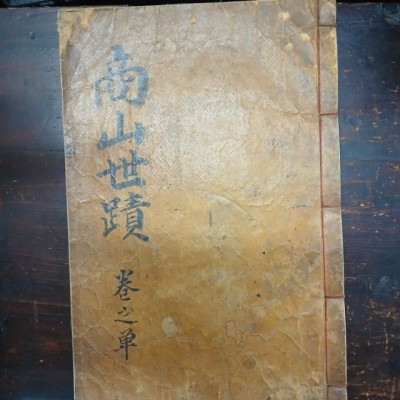 商山世蹟
卷之单